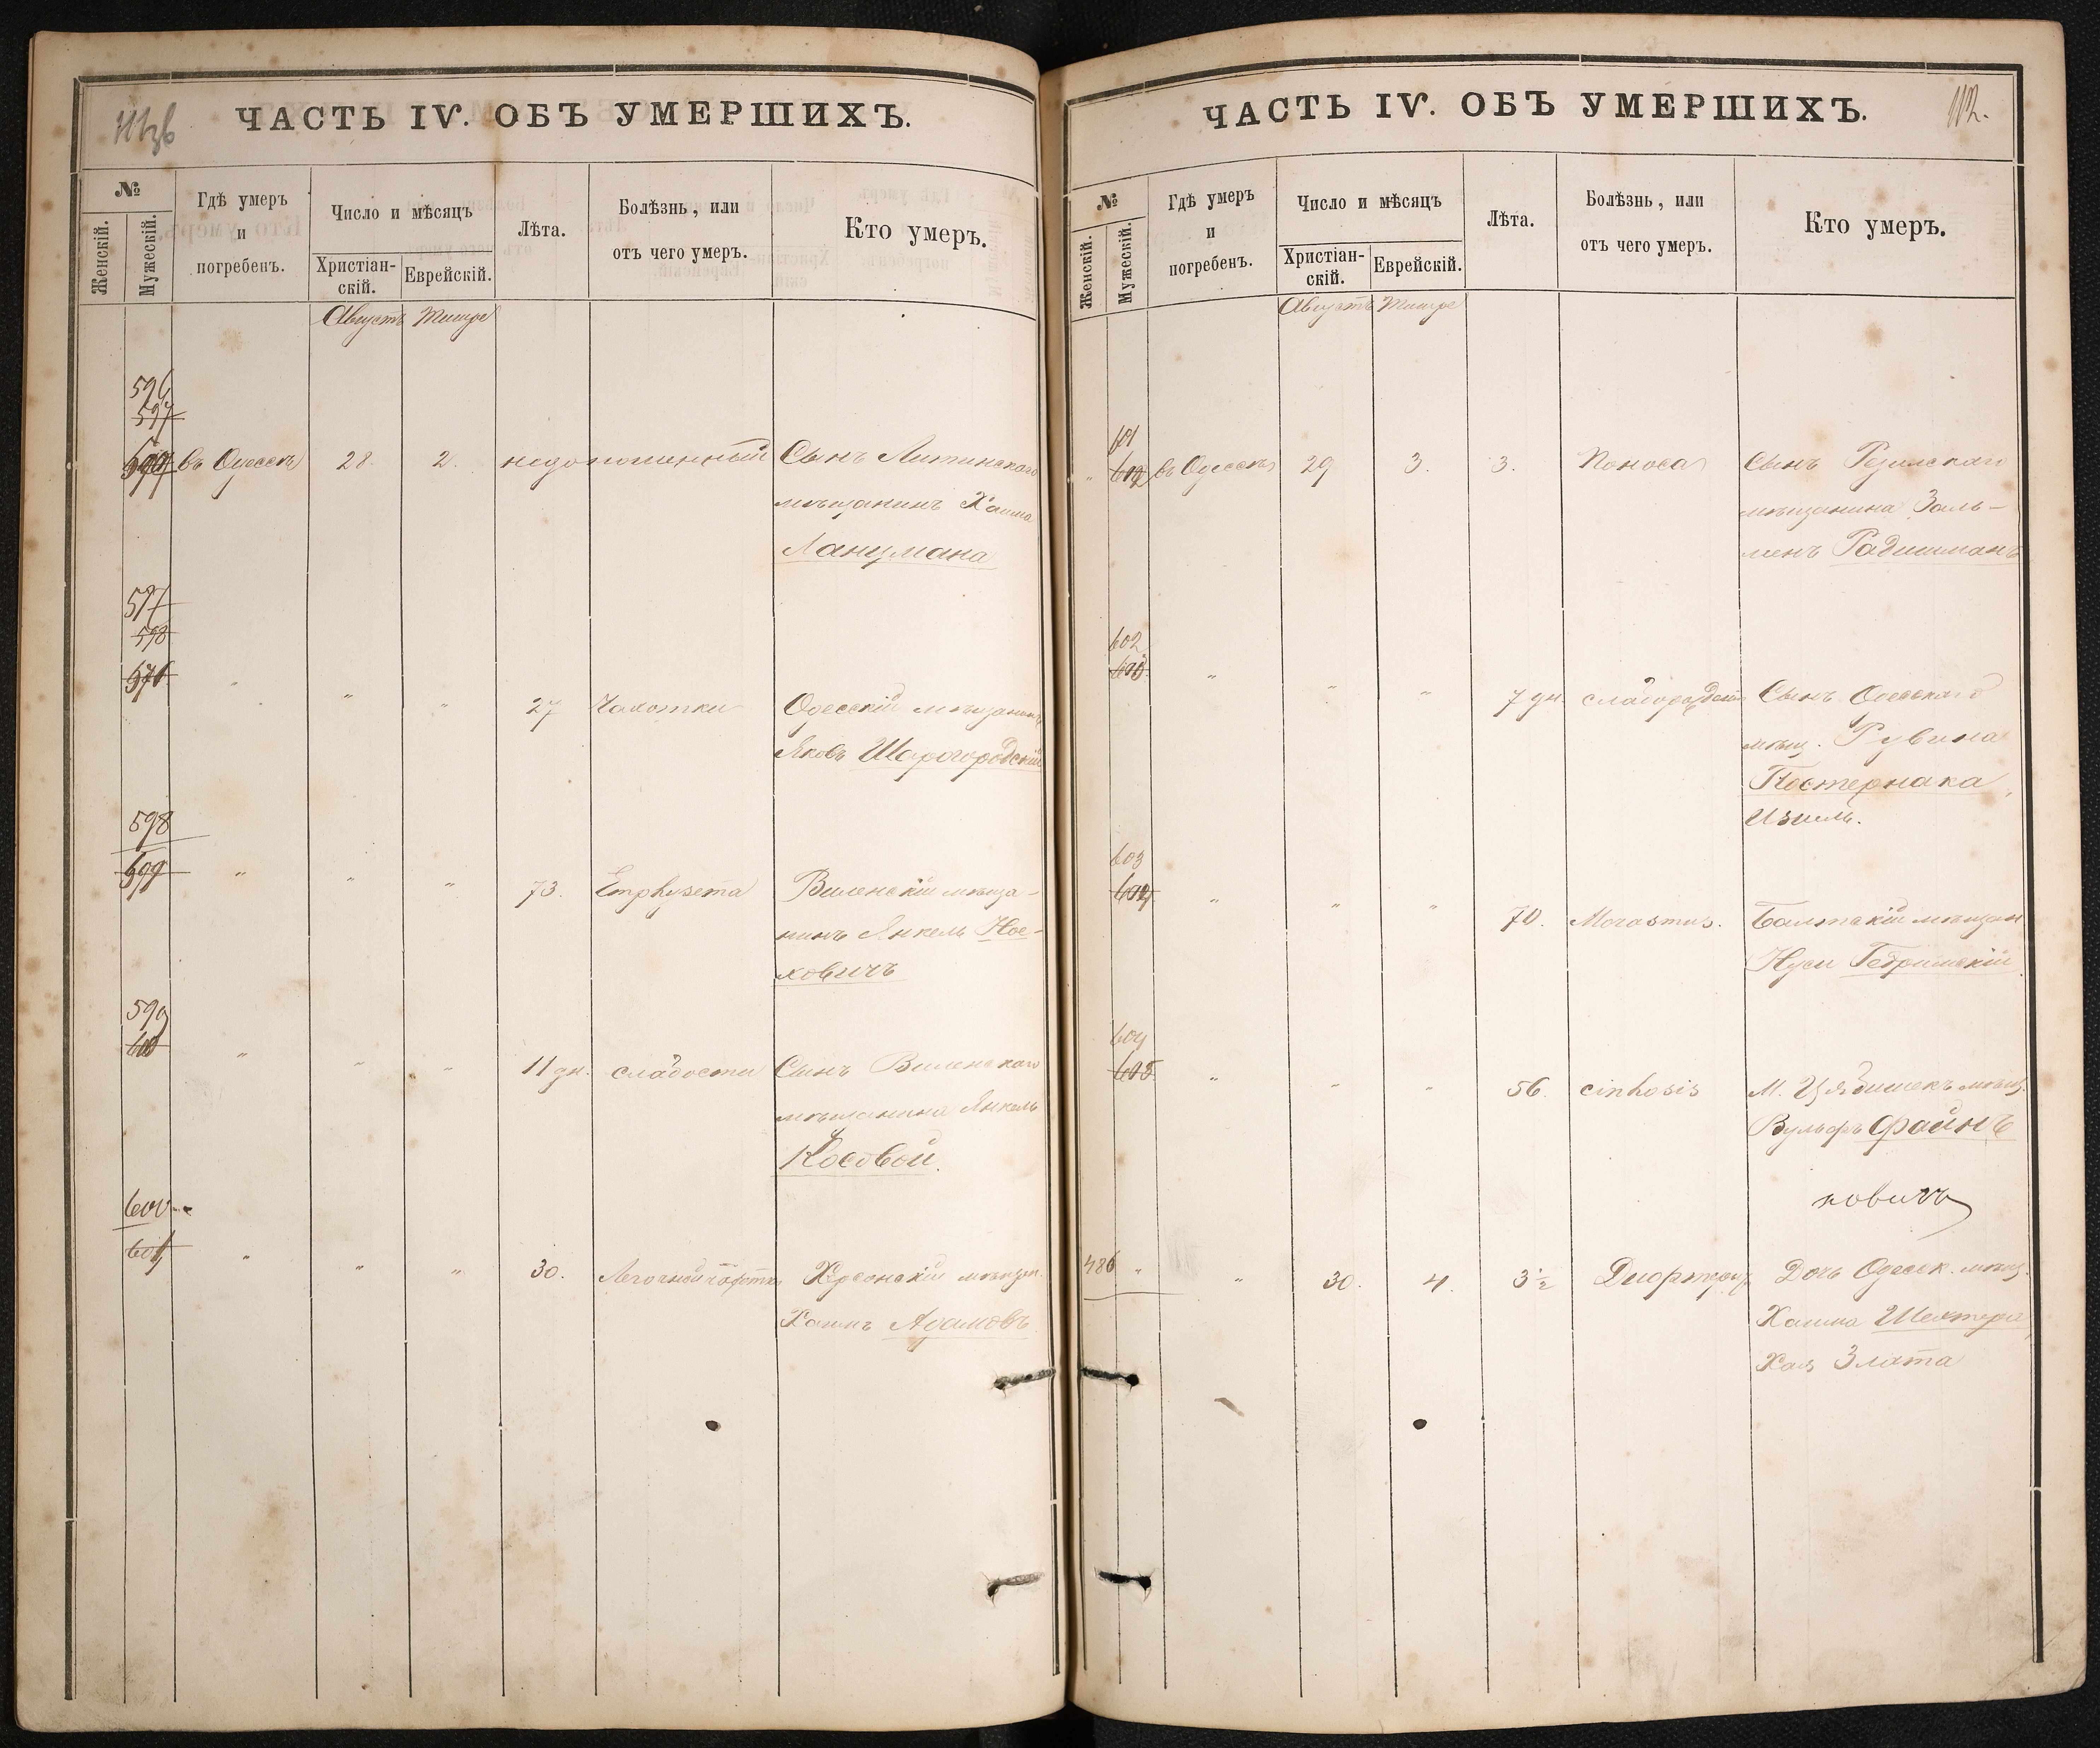 ЧАСТЬ IV. ОБЪ УМЕРШИХЪ.
№
Женскій.
Мужескій.
Гдѣ умеръ
и
погребенъ.
Число и мѣсяцъ
Христіан-
скій.
Еврейскій.
Лѣта.
Болѣзнь, или
отъ чего умеръ.
Кто умеръ.
Августъ Тишре
596
597
въ Одессѣ 28. 2. недоношенный Сынъ Литинскаго
мѣщанинъ Хаима
Ланцмана
597
598
" " " 27 Чахотки Одесскій мѣщанинъ
Яковъ Шарогородскій
598
599 " " " 73. Emphysema Виленскій мѣща-
нинъ Янкель Нос-
ковичъ
599
600 " " " 11 дн. слабости Сынъ Виленскаго
мѣщанина Янкель
Косовой.
600
601 " " " 30. Легочной чахотки Херсонскій мѣщан.
Хаимъ Адамовъ
ЧАСТЬ IV. ОБЪ УМЕРШИХЪ.
112.
№
Женскій.
Мужескій.
Гдѣ умеръ
и
погребенъ.
Число и мѣсяцъ
Христіан-
скій.
Еврейскій.
Лѣта.
Болѣзнь, или
отъ чего умеръ.
Кто умеръ.
Августъ Тишре
601
" 602 въ Одессѣ 29 3. 3. Поноса Сынъ
мѣщанина Заль-
менъ
602
603 " " " 7 дн. Сынъ Одесскаго
мѣщ. Рувина
Постернака,
Изиль.
603
604 " " " 70. Marasmus. Балтскій мѣщан
Нусн
604
605 " " " 56. cirrhosis М. мѣщ.
Вульфъ Файнъ
ковичъ
486 " " 30. 4. 3 ½ Дифтерит Дочь Одесск. мѣщ.
Хаима Шехтера,
Хая Злата